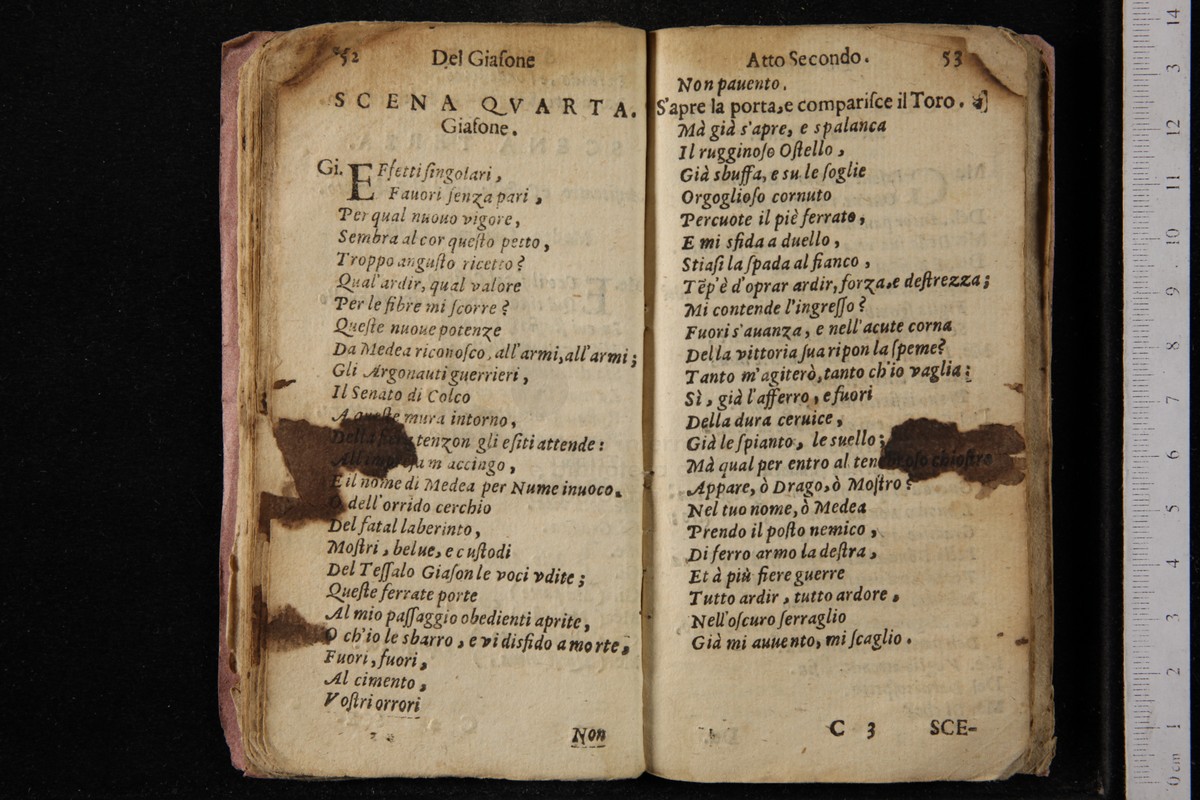 252
Del Giaſone
SCENA QVARTA.
Giaſone.
Gi. EFfetti ſingolari,
Fauori ſenza pari,
Per qual nuouo vigore,
Sembra al cor queſto petto,
Troppo anguſto ricetto?
Qual'ardir, qual valore
Per le fibre mi ſcorre?
Queſte nuoue potenze
Da Medea riconoſco, all'armi, all'armi;
Gli Argonauti guerrieri,
Il Senato di Colco
A queſte mura intorno,
Della fiera tenzon gli eſiti attende:
All'impreſa m accingo,
E il nome di Medea per Nume inuoco.
O dell'orrido cerchio
Del fatal laberinto,
Moſtri, belue, e cuſtodi
Del Teſſalo Giaſon le voci vdite;
Queſte ferrate porte
Al mio paſſaggio obedienti aprite,
O ch'io le sbarro, e vi disfido a morte,
Fuori, fuori,
Al cimento,
Voſtri orrori
Non
Atto Secondo.
53
Non pauento.
S'apre la porta, e compariſce il Toro.
Mà già s'apre, e spalanca
Il rugginoſo Oſtello,
Già sbuffa, e su le ſoglie
Orgoglioſo cornuto
Percuote il piè ferrato,
E mi sfida a duello,
Stiaſi la ſpada al fianco,
Tẽp'è d'oprar ardir, forza, e deſtrezza;
Mi contende l'ingreſſo?
Fuori s'auanza, e nell'acute corna
Della vittoria ſua ripon la ſpeme?
Tanto m'agiterò, tanto ch'io vaglia;
Sì, già l'afferro, e fuori
Della dura ceruice,
Già le ſpianto, le suello;
Mà qual per entro al tenebroſo chioſtro
Appare, ò Drago, ò Moſtro?
Nel tuo nome, ò Medea
Prendo il poſto nemico,
Di ferro armo la deſtra,
Et à più fiere guerre
Tutto ardir, tutto ardore,
Nell'oſcuro ſerraglio
Già mi auuento, mi ſcaglio.
C 3
SCE-
14
3
12
11
10
9
8
7
6
5
4
3
2
1
0 cm